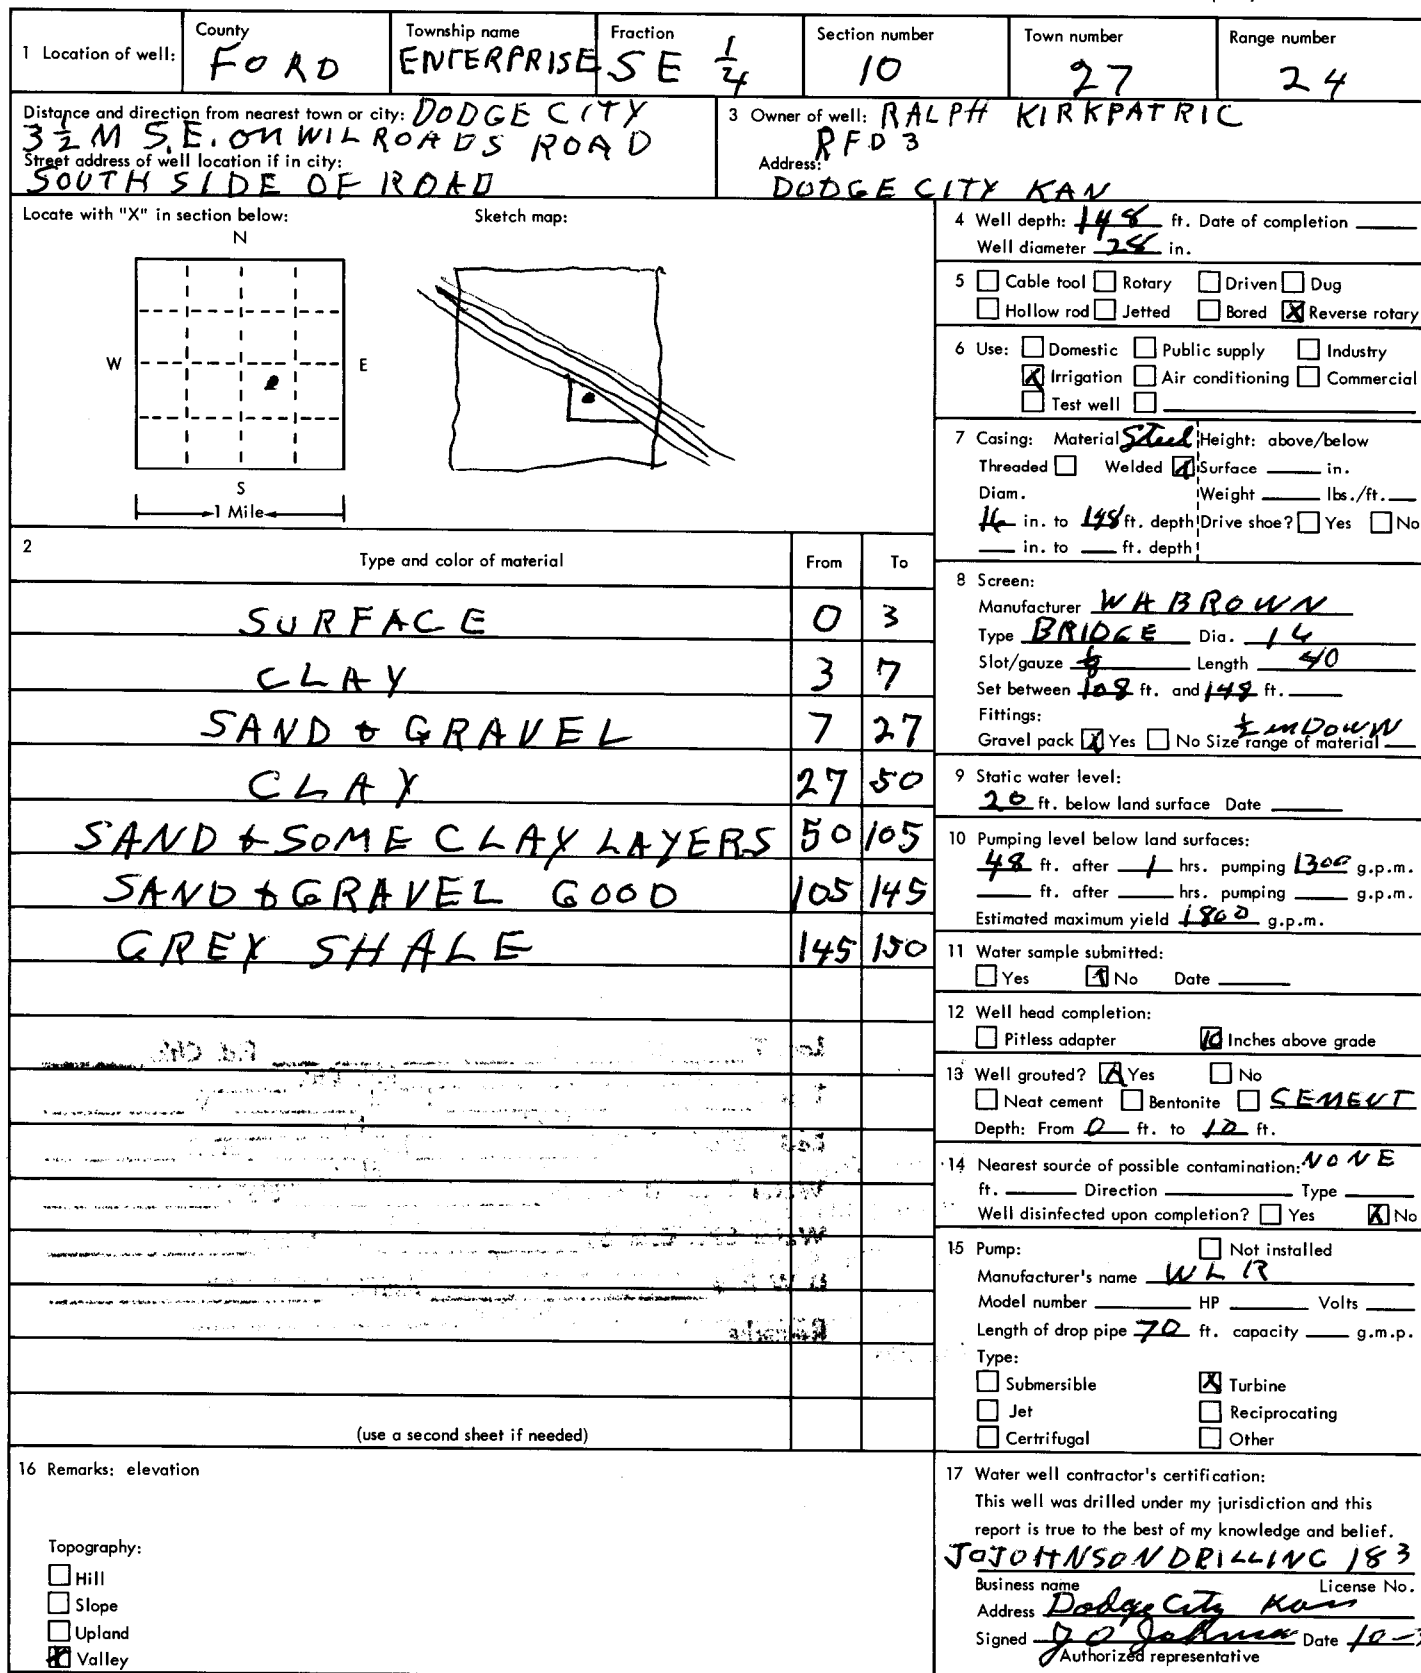 1 Location of well: County FORD Township name ENTERPRISE Fraction SE 1/4 Section number 10 Town number 27 Range number 24
Distance and direction from nearest town or city: DODGE CITY
3 1/2 M S.E. ON WILROADS ROAD
Street address of well location if in city:
SOUTH SIDE OF ROAD
3 Owner of well: RALPH KIRKPATRIC
RFD 3
Address:
DODGE CITY KAN
Locate with "X" in section below:
Sketch map:
N
W
E
S
1 Mile
2
Type and color of material From To
SURFACE 0 3
CLAY 3 7
SAND & GRAVEL 7 27
CLAY 27 50
SAND & SOME CLAY LAYERS 50 105
SAND & GRAVEL GOOD 105 145
GREY SHALE 145 150
(use a second sheet if needed)
4 Well depth: 148 ft. Date of completion
Well diameter 28 in.
5 Cable tool Rotary Driven Dug
Hollow rod Jetted Bored X Reverse rotary
6 Use: Domestic Public supply Industry
X Irrigation Air conditioning Commercial
Test well
7 Casing: Material Steel Height: above/below
Threaded Welded X Surface in.
Diam. Weight lbs./ft.
16 in. to 148 ft. depth Drive shoe? Yes No
in. to ft. depth
8 Screen:
Manufacturer WA BROWN
Type BRIDGE Dia. 16
Slot/gauze 1/8 Length 40
Set between 108 ft. and 148 ft.
Fittings: 1/2 in DOWN
Gravel pack X Yes No Size range of material
9 Static water level:
20 ft. below land surface Date
10 Pumping level below land surfaces:
48 ft. after 1 hrs. pumping 1300 g.p.m.
ft. after hrs. pumping g.p.m.
Estimated maximum yield 1800 g.p.m.
11 Water sample submitted:
Yes No Date
12 Well head completion:
Pitless adapter 10 Inches above grade
13 Well grouted? X Yes No
Neat cement Bentonite CEMENT
Depth: From 0 ft. to 10 ft.
14 Nearest source of possible contamination: NONE
ft. Direction Type
Well disinfected upon completion? Yes X No
15 Pump: Not installed
Manufacturer's name WLR
Model number HP Volts
Length of drop pipe 70 ft. capacity g.m.p.
Type:
Submersible X Turbine
Jet Reciprocating
Certrifugal Other
16 Remarks: elevation
Topography:
Hill
Slope
Upland
X Valley
17 Water well contractor's certification:
This well was drilled under my jurisdiction and this
report is true to the best of my knowledge and belief.
JO JOHNSON DRILLING 183
Business name License No.
Address Dodge City Kans
Signed J O Johnson Date 10-
Authorized representative